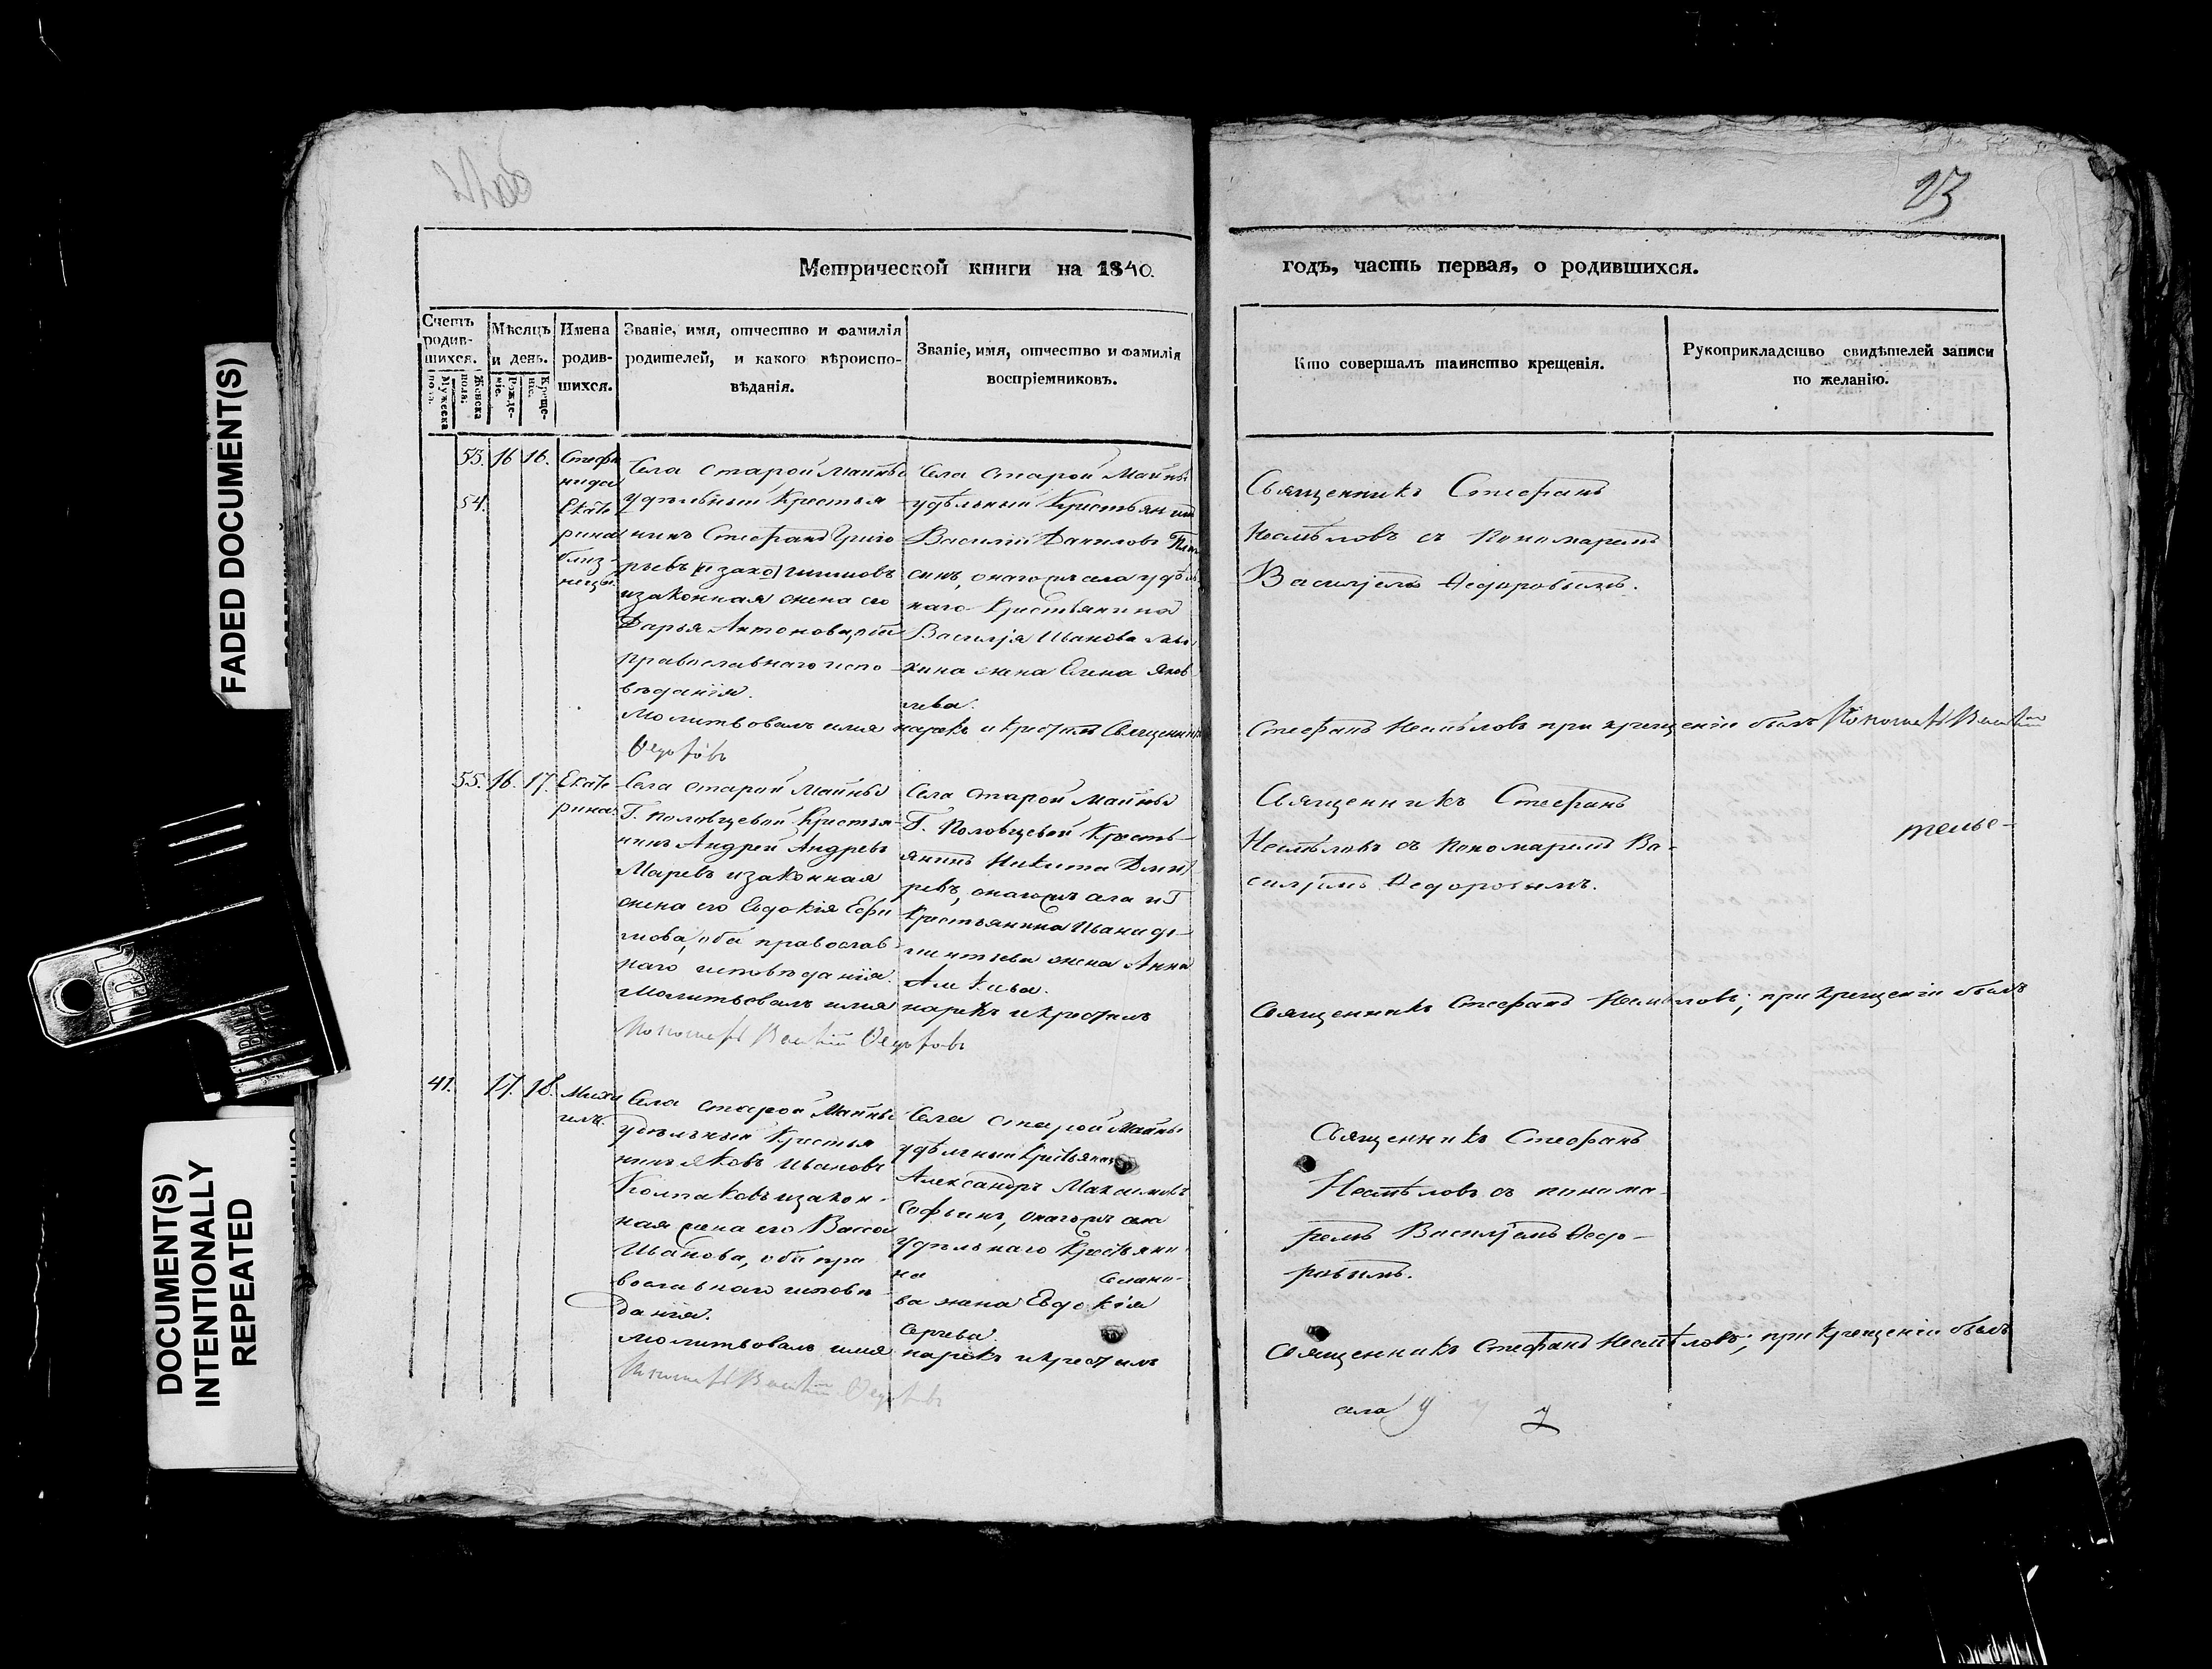 FADED DOCUMENT(S)
DOCUMENT(S)
INTENTIONALLY
REPEATED
23
Метрической книги на 1840.
годъ, часть первая, о родившихся.
Счетъ
родив-
шихся.
Мужеска
пола.
Женска
пола.
Мѣсяцъ
и день.
Рожде-
ніе.
Креще-
ніе.
Имена
родив-
шихся.
Званіе, имя, отчество и фамилія
родителей, и какого вѣроиспо-
вѣданія.
Званіе, имя, отчество и фамилія
воспріемниковъ.
Кто совершалъ таинство крещенія.
Рукоприкладство свидѣтелей записи
по желанію.
16 16.
54.
Екате
рина
близ-
Села Старой Майны
удѣльный Крестья
нинъ Стефанъ Григо
рьевъ
и законная жена его
Дарья Антонова,
православнаго испо-
вѣданія.
Молитвовалъ имя нарекъ и крестилъ Священникъ
Ѳедоровъ
Села Старой Майны
удѣльный Крестьянинъ
Василій Даниловъ
синъ, онагожъ села удѣль
наго Крестьянина
Василія Иванова
хина жена Елена Яков
лева.
Священникъ Стефанъ
Несмѣловъ съ Пономаремъ
Василіемъ Ѳедоровымъ.
Стефанъ Несмѣловъ при крещеніи былъ Пономарь Василій
55. 16. 17.
Екате
рина.
Села Старой Майны
Г. Половцевой Крестья-
нинъ Андрей Андреевъ
Маревъ и законная
жена его Евдокія Ефи
мова, оба православ-
наго исповѣданія.
Молитвовалъ имя нарекъ и крестилъ
Пономарь Василій Ѳедоровъ
Села Старой Майны
Г. Половцевой Кресть-
янинъ Никита
ревъ, онагожъ села и Г
Крестьянина Ивана
жена Анна
Священникъ Стефанъ
Несмѣловъ съ Пономаремъ Ва-
силіемъ Ѳедоровымъ.
Священникъ Стефанъ Несмѣловъ; при крещеніи былъ
41. 17. 18.
Миха
илъ.
Села Старой Майны
удѣльный Крестья
нинъ Яковъ Ивановъ
Колпаковъ и закон-
ная жена его Васса
Иванова, оба пра
вославнаго исповѣ
данія.
Молитвовалъ имя нарекъ и крестилъ
Пономарь Василій Ѳедоровъ
Села Старой Майны
удѣльный Крестьянинъ
Александръ Максимовъ
Софьинъ, онагожъ села
удѣльнаго Крестьяни-
на
ва жена Евдокія
Сергѣева.
Священникъ Стефанъ
Несмѣловъ съ понома-
ремъ Василіемъ Ѳедо-
ровымъ.
Священникъ Стефанъ Несмѣловъ; при крещеніи былъ
села